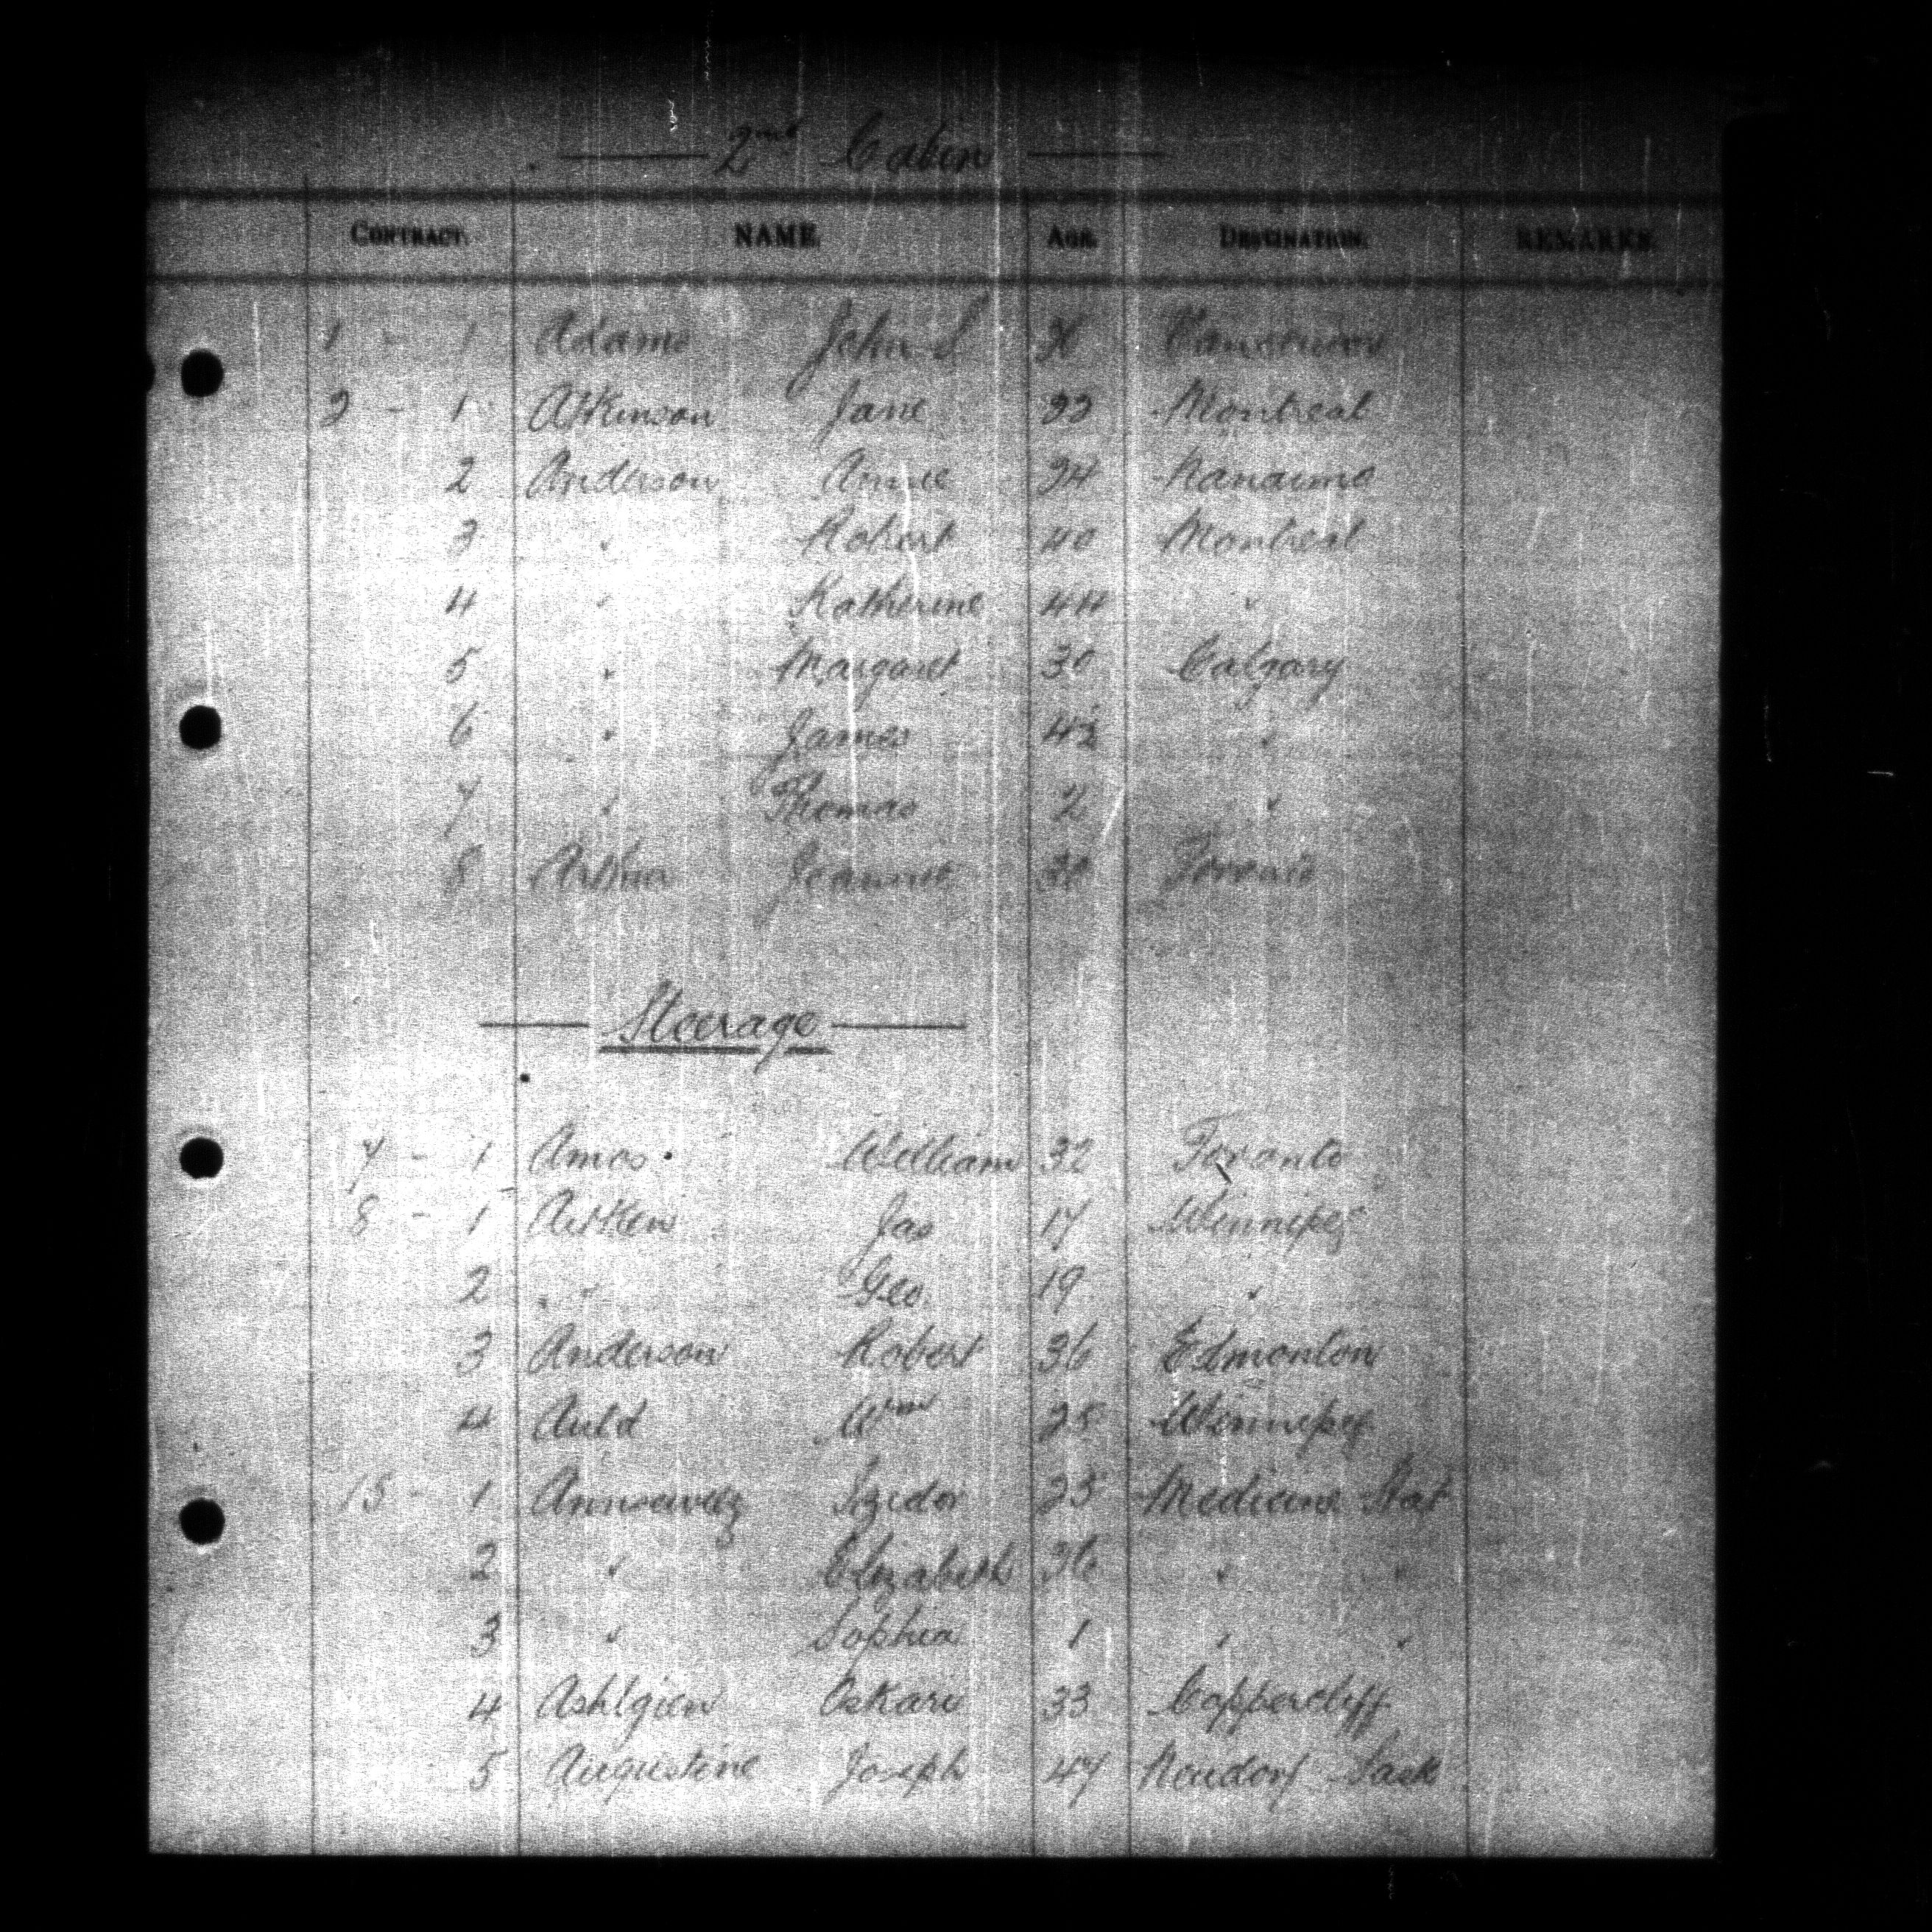 2nd Cabin
CONTRACT. NAME. AGE. DESTINATION. REMARKS.
1 - 1 Adams John S Vancouver
2 - 1 Atkinson Jane 22 Montreal
2 Anderson Annie 24 Nanaimo
3 " Robert 40 Montreal
4 " Katherine 44 "
5 " Margaret 30 Calgary
6 " James 4½ "
7 " Thomas 2 "
8 Arthur Jeannie 30 Toronto
Steerage
7 - 1 Amos William 32 Toronto
8 - 1 Aitken Jas 17 Winnipeg
2 " Geo. 19 "
3 Anderson Robert 36 Edmonton
4 Auld Wm 25 Winnipeg
15 - 1 Izidor 25 Medicine Hat
2 " Elizabeth 36 " "
3 " Sophia 1 " "
4 Oskari 33 Coppercliff
5 Augustine Joseph 47 Neudorf Sask